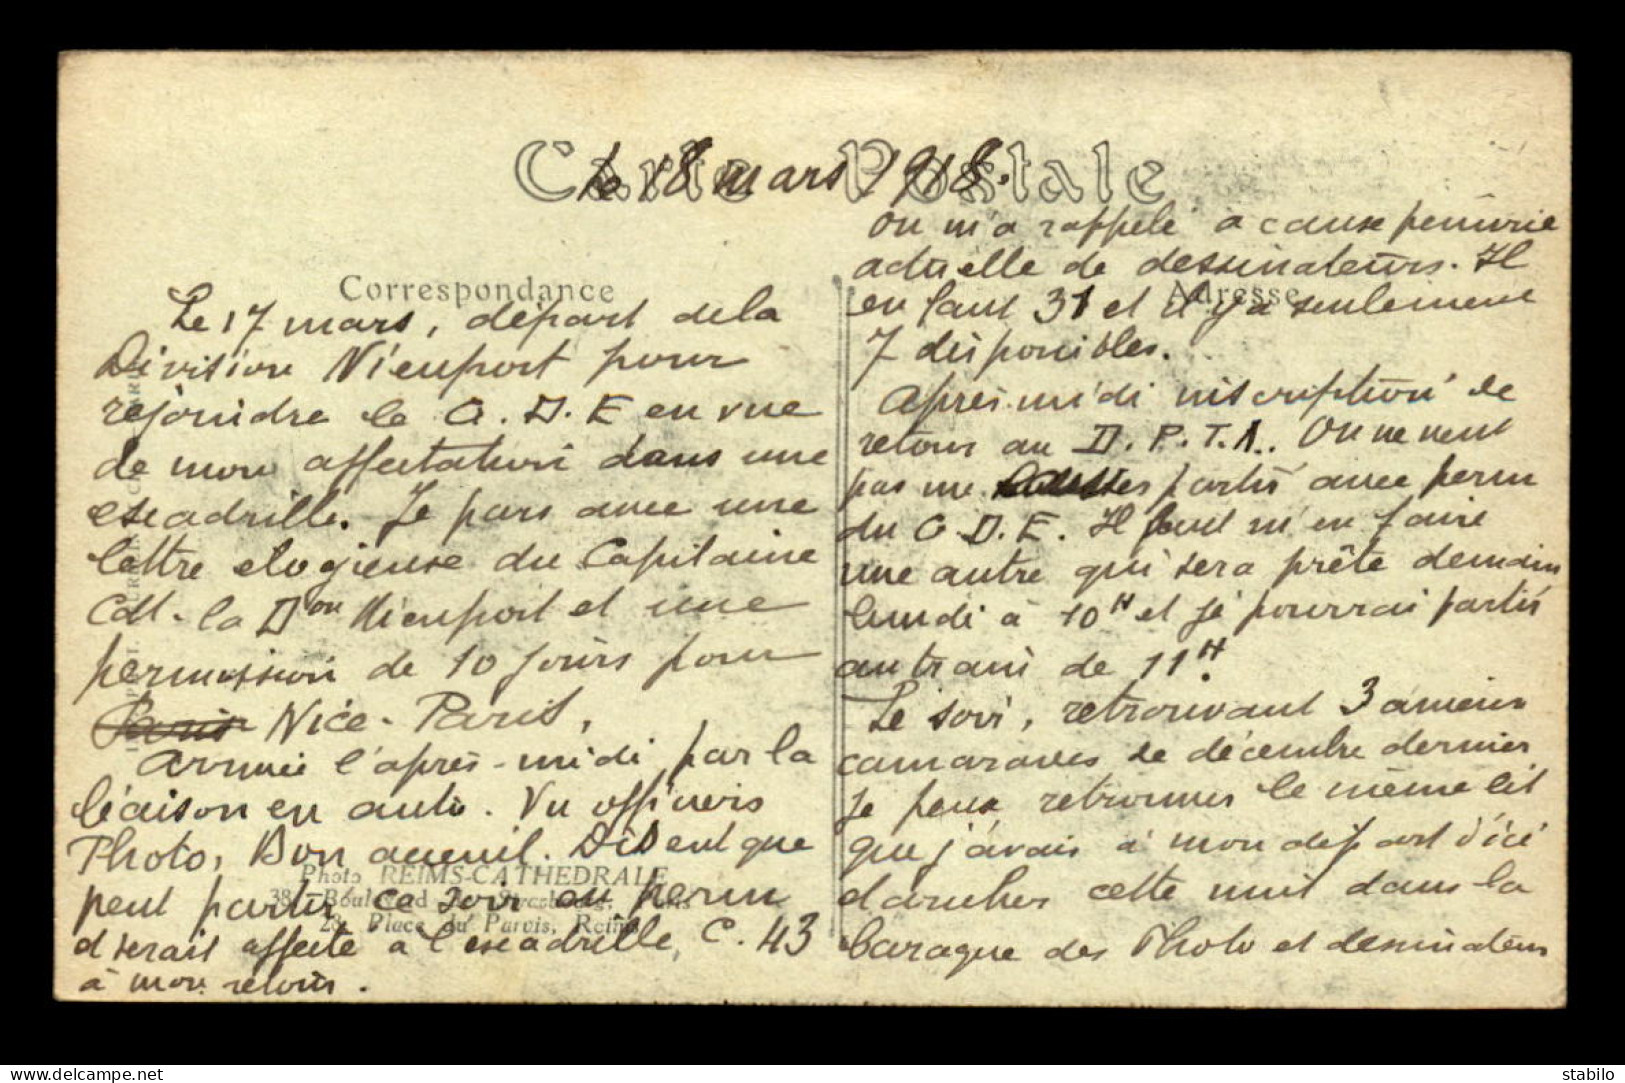 Carte Postale
le 18 mars 1918.
Correspondance
Le 17 mars, départ de la
Division Nieuport pour
rejoindre le G. D. E en vue
de mon affectation dans une
escadrille. Je pars avec une
lettre elogieuse du Capitaine
Cdt. la Don Nieuport et une
permission de 10 jours pour
Paris Nice - Paris,
Arrivée l'après-midi par la
liaison en auto. Vu officiers
Photo, Bon acceuil. Disent que
peut partir ce soir en perm
et serait affecté à l'escadrille, C. 43
à mon retour.
Photo REIMS-CATHEDRALE
38, Boulevard de Strasbourg, Paris
23, Place du Parvis, Reims
Adresse
On m'a rappelé à cause penurie
actuelle de dessinateurs. Il
en faut 31 et il y a seulement
7 disponibles.
Après-midi inscription de
retour au D. P. T. A.. On ne veut
pas me partir avec perm
du G. D. E. Il faut m'en faire
une autre qui sera prête demain
lundi à 10H et je pourrai partir
au train de 11H.
Le soir, retrouvant 3 anciens
camarades de décembre dernier
je peux retrouver le même lit
que j'avais à mon départ d'ici
coucher cette nuit dans la
baraque des Photo et dessinateurs